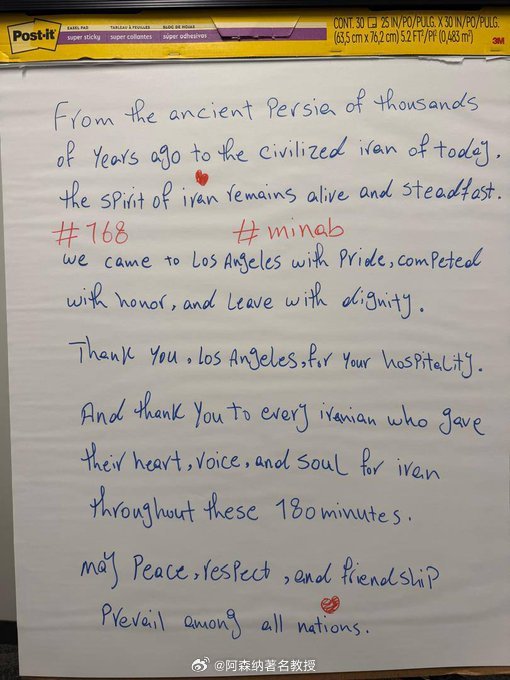 Post-it
EASEL PAD
super sticky
TABLEAU À FEUILLES
super collantes
BLOC DE HOJAS
súper adhesivas
CONT. 30 25 IN/PO/PULG. X 30 IN/PO/PULG.
(63,5 cm x 76,2 cm) 5.2 FT²/PI² (0,483 m²)
3M
From the ancient Persia of thousands
of Years ago to the civilized iran of today.
the spirit of iran remains alive and steadfast.
#168 #minab
we came to Los Angeles with Pride, competed
with honor, and Leave with dignity.
Thank You, Los Angeles, for Your hospitality.
And thank You to every iranian who gave
their heart, voice, and soul for iran
throughout these 180 minutes.
may Peace, respect, and friendship
Prevail among all nations.
@阿森纳著名教授